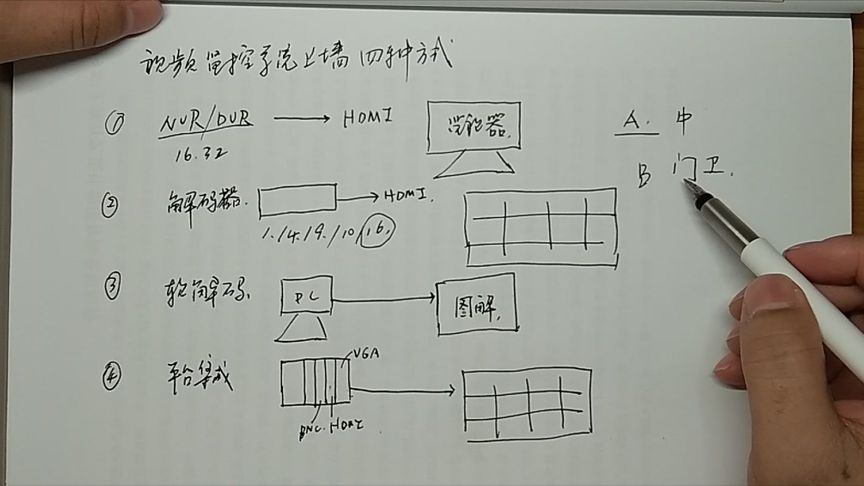 视频监控系统上墙四种方式
① NVR/DVR → HDMI 监视器.
16.32
② 解码器. → HDMI.
1./4./9./10/16.
③ 软解码. PC → 图解.
④ 平台集成 VGA
BNC. HDMI
A. 中
B 门卫.